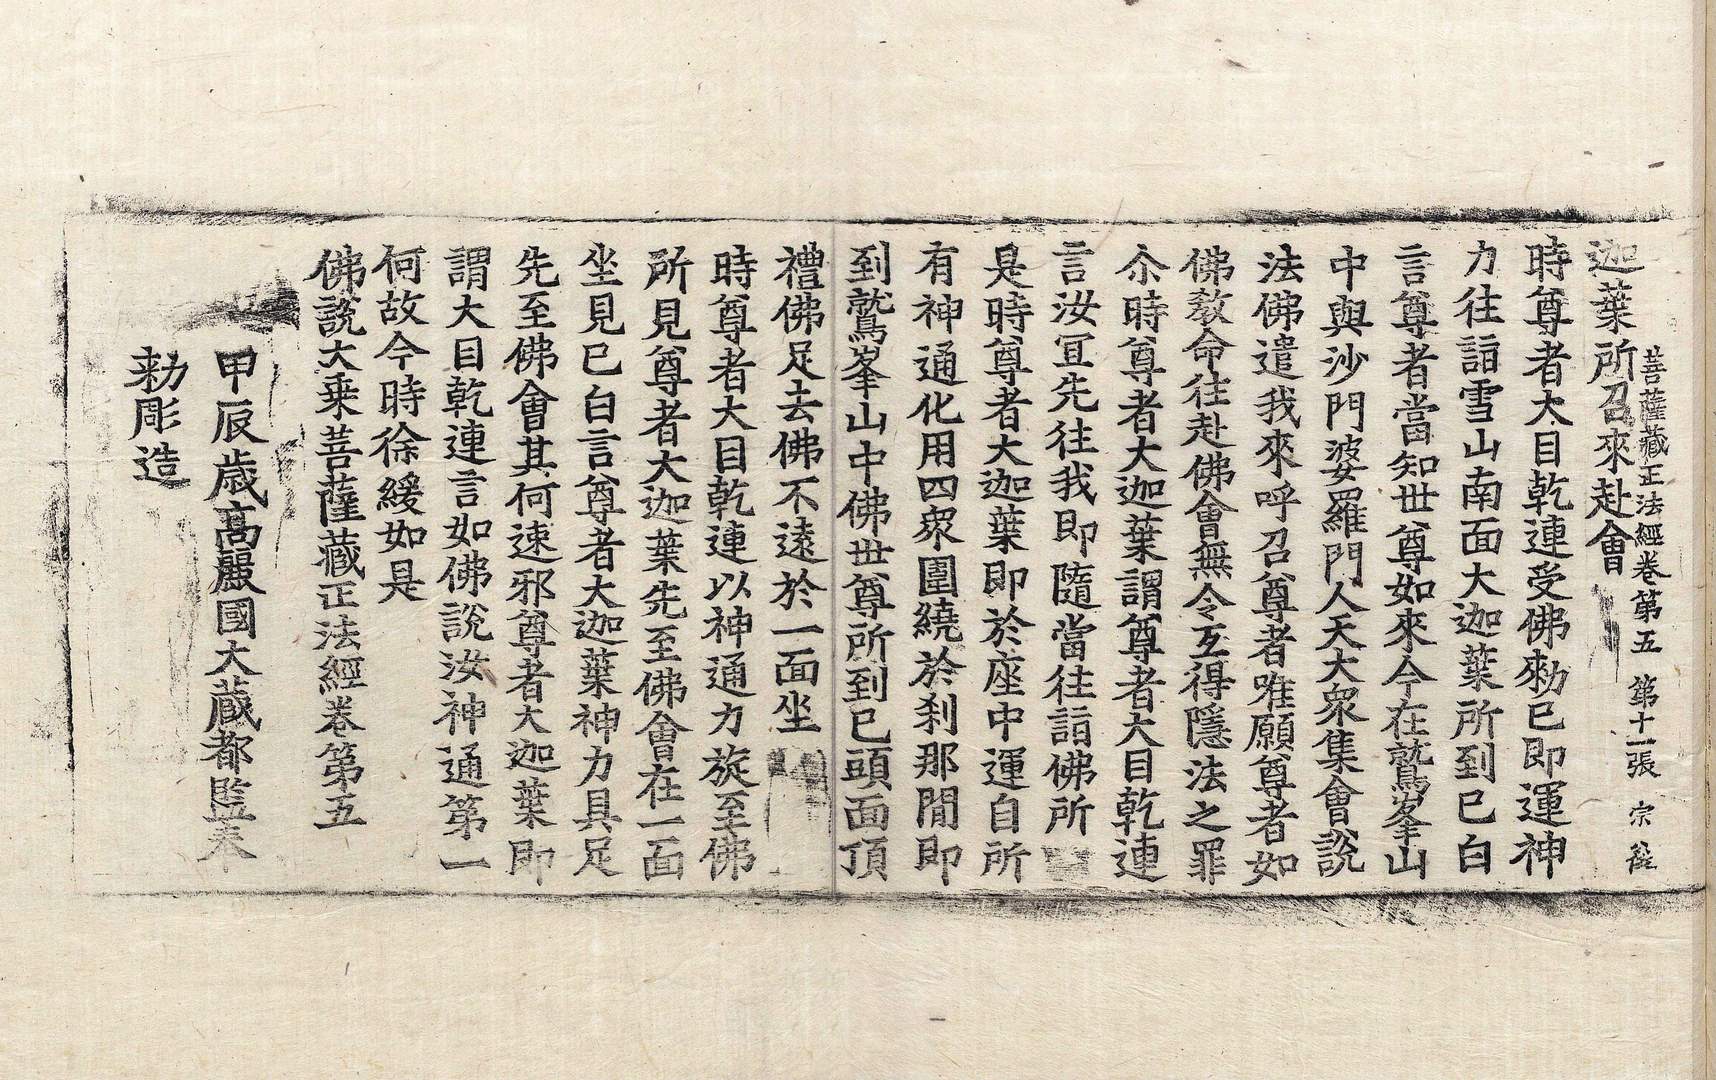 菩薩藏正法經卷第五 第十一張 宗
迦葉所召來赴會
時尊者大目乾連受佛勑已即運神
力往詣雪山南面大迦葉所到已白
言尊者當知世尊如來今在鷲峯山
中與沙門婆羅門人天大衆集會說
法佛遣我來呼召尊者唯願尊者如
佛教命往赴佛會無令互得隱法之罪
尒時尊者大迦葉謂尊者大目乾連
言汝宜先往我即隨當往詣佛所
是時尊者大迦葉即於座中運自所
有神通化用四衆圍繞於刹那閒即
到鷲峯山中佛世尊所到已頭面頂
禮佛足去佛不遠於一面坐
時尊者大目乾連以神通力旋至佛
所見尊者大迦葉先至佛會在一面
坐見已白言尊者大迦葉神力具足
先至佛會其何速邪尊者大迦葉即
謂大目乾連言如佛說汝神通第一
何故今時徐緩如是
佛說大乘菩薩藏正法經卷第五
甲辰歲高麗國大藏都監奉
勑彫造